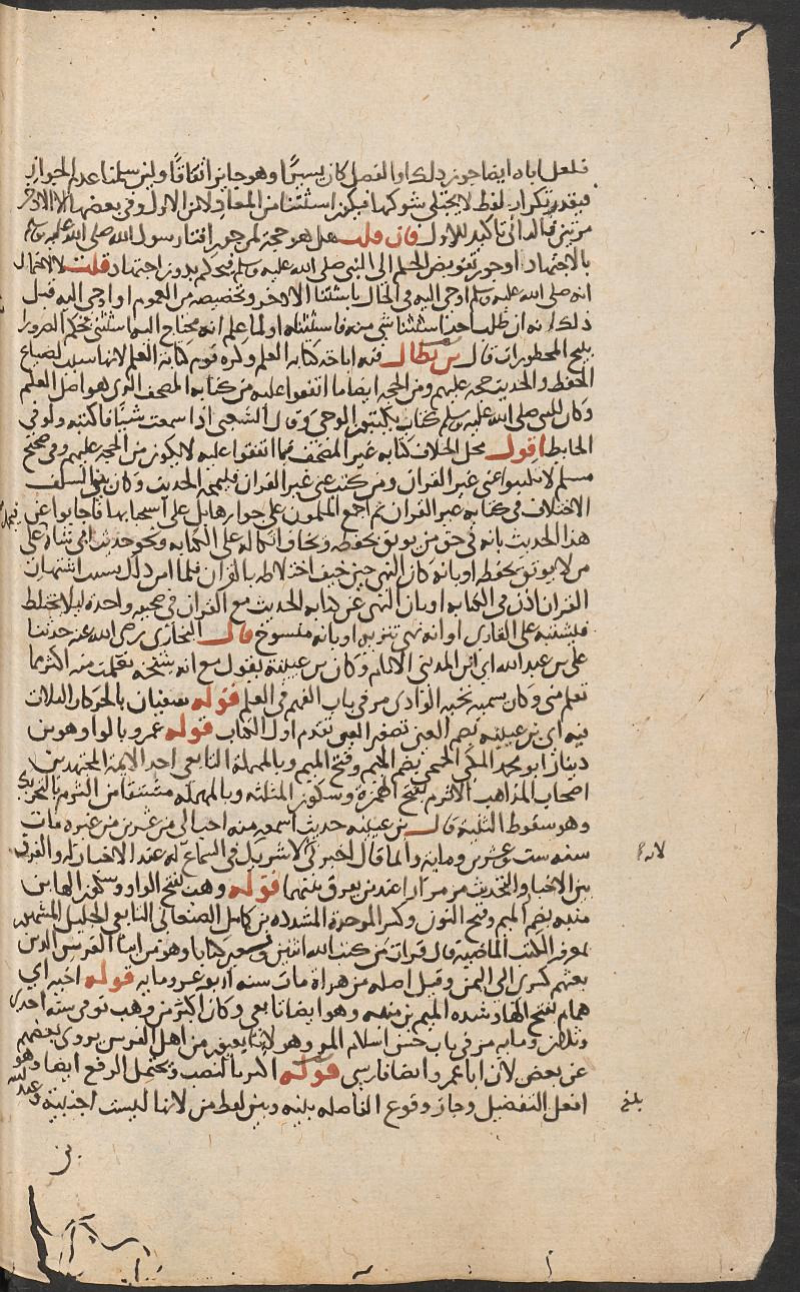 فلعل اباه ايضا جوز ذلك او الفصل كان يسيرًا وهو جايز اتفاقًا ولئن سلمنا عدم الجواز
فيقدر تكرار لفظ لا يختلى شوكها فيكون استثنا من المعاد لا من الاول وفي بعضها الا الاذخر
مرتين فالثاني تاكيد للاول فان قلت هل هو حجة لمن جوز افتا رسول الله صلى الله عليه وسلم
بالاجتهاد او جوز تفويض الحكم الى النبي صلى الله عليه وسلم فيحكم بدون اجتهاد قلت لا لاحتمال
انه صلى الله عليه وسلم اوحي اليه في الحال باستثنا الاذخر وتخصيصه من العموم او اوحي اليه قبل
ذلك انه ان طلب احد استثنا شي منه فاستثناه او لما علم انه يحتاج اليه استثنى بحكم الضرورات
تبيح المحظورات قال بن بطال فيه اباحة كتابة العلم وكره قوم كتابة العلم لانها سبب لضياع
الحفظ والحديث حجة عليهم ومن الحجة ايضا ما اتفقوا عليه من كتابة المصحف الذي هو اصل العلم
وكان للنبي صلى الله عليه وسلم كتاب يكتبون الوحي وقال الشعبي اذا سمعت شيًا فاكتبه ولو في
الحايط اقول محل الخلاف كتابة غير المصحف فما اتفقوا عليه لا يكون من الحجة عليهم وفي صحيح
مسلم لا تكتبوا عني غير القران ومن كتب عني غير القران فليمحه الحديث وكان بين السلف
الاختلاف في كتابة غير القران ثم اجمع المسلمون على جوازها بل على استحبابها فاجابوا عن
هذا الحديث بانه في حق من يوثق بحفظه ويخاف اتكاله على الكتابة ونحو حديث ابي شاه على
من لا يوثق بحفظه او بانه كان النهي حين خيف اختلاطه بالقران فلما امن ذلك بسبب اشتهار
القران اذن في الكتابة او بان النهي عن كتابة الحديث مع القران في صحيفة واحدة ليلا يختلط
فيشتبه على القاري او انه نهي تنزيه او بانه منسوخ قال البخاري رضي الله عنه حدثنا
علي بن عبد الله اي ابن المديني الامام وكان بن عيينة يقول مع انه شيخه تعلمت منه اكثر مما
تعلم مني وكان يسميه بحية الوادي مر في باب الفهم في العلم قوله سفيان بالحركات الثلاث
فيه اي بن عيينه بضم العين تصغير العين تقدم اول الكتاب قوله عمرو بالواو هو بن
دينار ابو محمد المكي الجمحي بضم الجيم وفتح الميم وبالمهملة التابعي احد الايمة المجتهدين
اصحاب المذاهب الاثرم بفتح الهمزة وسكون المثلثه وبالمهملة مشتقا من الثرم بالتحريك
وهو سقوط الثنية قال بن عيينه حديث اسمعه منه احب الي من عشرين من غيره مات
سنه ست وعشرين ومايه وانما قال اخبرني لا شريك في السماع له عند الاخبار له والفرق
بين الاخبار والتحديث مر مرارا عند من يفرق بينهما قوله وهب بفتح الواو وسكون الها بن
منبه بضم الميم وفتح النون وكسر الموحدة المشدده بن كامل الصنعاني التابعي الجليل المشهور
بمعرفة الكتب الماضية قال قرات من كتب الله اثنين وتسعين كتابا وهو من ابنا الفرس الذين
بعثهم كسرى الى اليمن وقيل اصله من هراة مات سنه اربع عشر ومايه قوله اخيه اي
همام بفتح الها وشدة الميم بن منبه وهو ايضا تابعي وكان اكثر من وهب توفي سنة احدى
وثلثين ومايه مر في باب حسن اسلام المرء وهو لانا يعبق من اهل الفرس يروي بعضهم
عن بعض لان ابا عمرو ايضا فارسي قوله اكثر بالنصب ويحتمل الرفع ايضا وهو
افعل التفضيل وجاز وقوع الفاصله بينه وبين لفظ من لانها ليست اجنبية وعبد الله
بلغ
بن